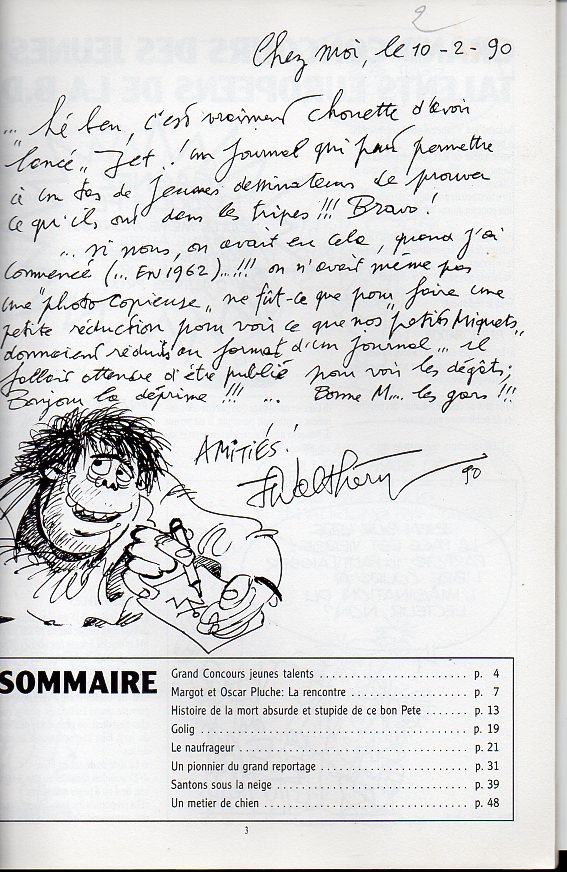 2
Chez moi, le 10-2-90
... "hé ben, c'est vraiment chouette d'avoir
"lancé" Jet! un journal qui peut permettre
à un tas de jeunes dessinateurs de prouver
ce qu'ils ont dans les tripes!!! Bravo!
... si nous, on avait eu cela, quand j'ai
commencé (... EN 1962)...!!! on n'avait même pas
une "photocopieuse", ne fût-ce que pour faire une
petite réduction pour voir ce que nos "petits Miquets"
donnaient réduits au format d'un journal... il
fallait attendre d'être publié pour voir les dégâts;
Bonjour la déprime!!! ... Bonne M.... les gars!!!
AMITIÉS!
F Walthéry 90
SOMMAIRE
Grand Concours jeunes talents ........................ p. 4
Margot et Oscar Pluche: La rencontre ........................ p. 7
Histoire de la mort absurde et stupide de ce bon Pete ....... p. 13
Golig ........................ p. 19
Le naufrageur ........................ p. 21
Un pionnier du grand reportage ........................ p. 31
Santons sous la neige ........................ p. 39
Un metier de chien ........................ p. 48
3